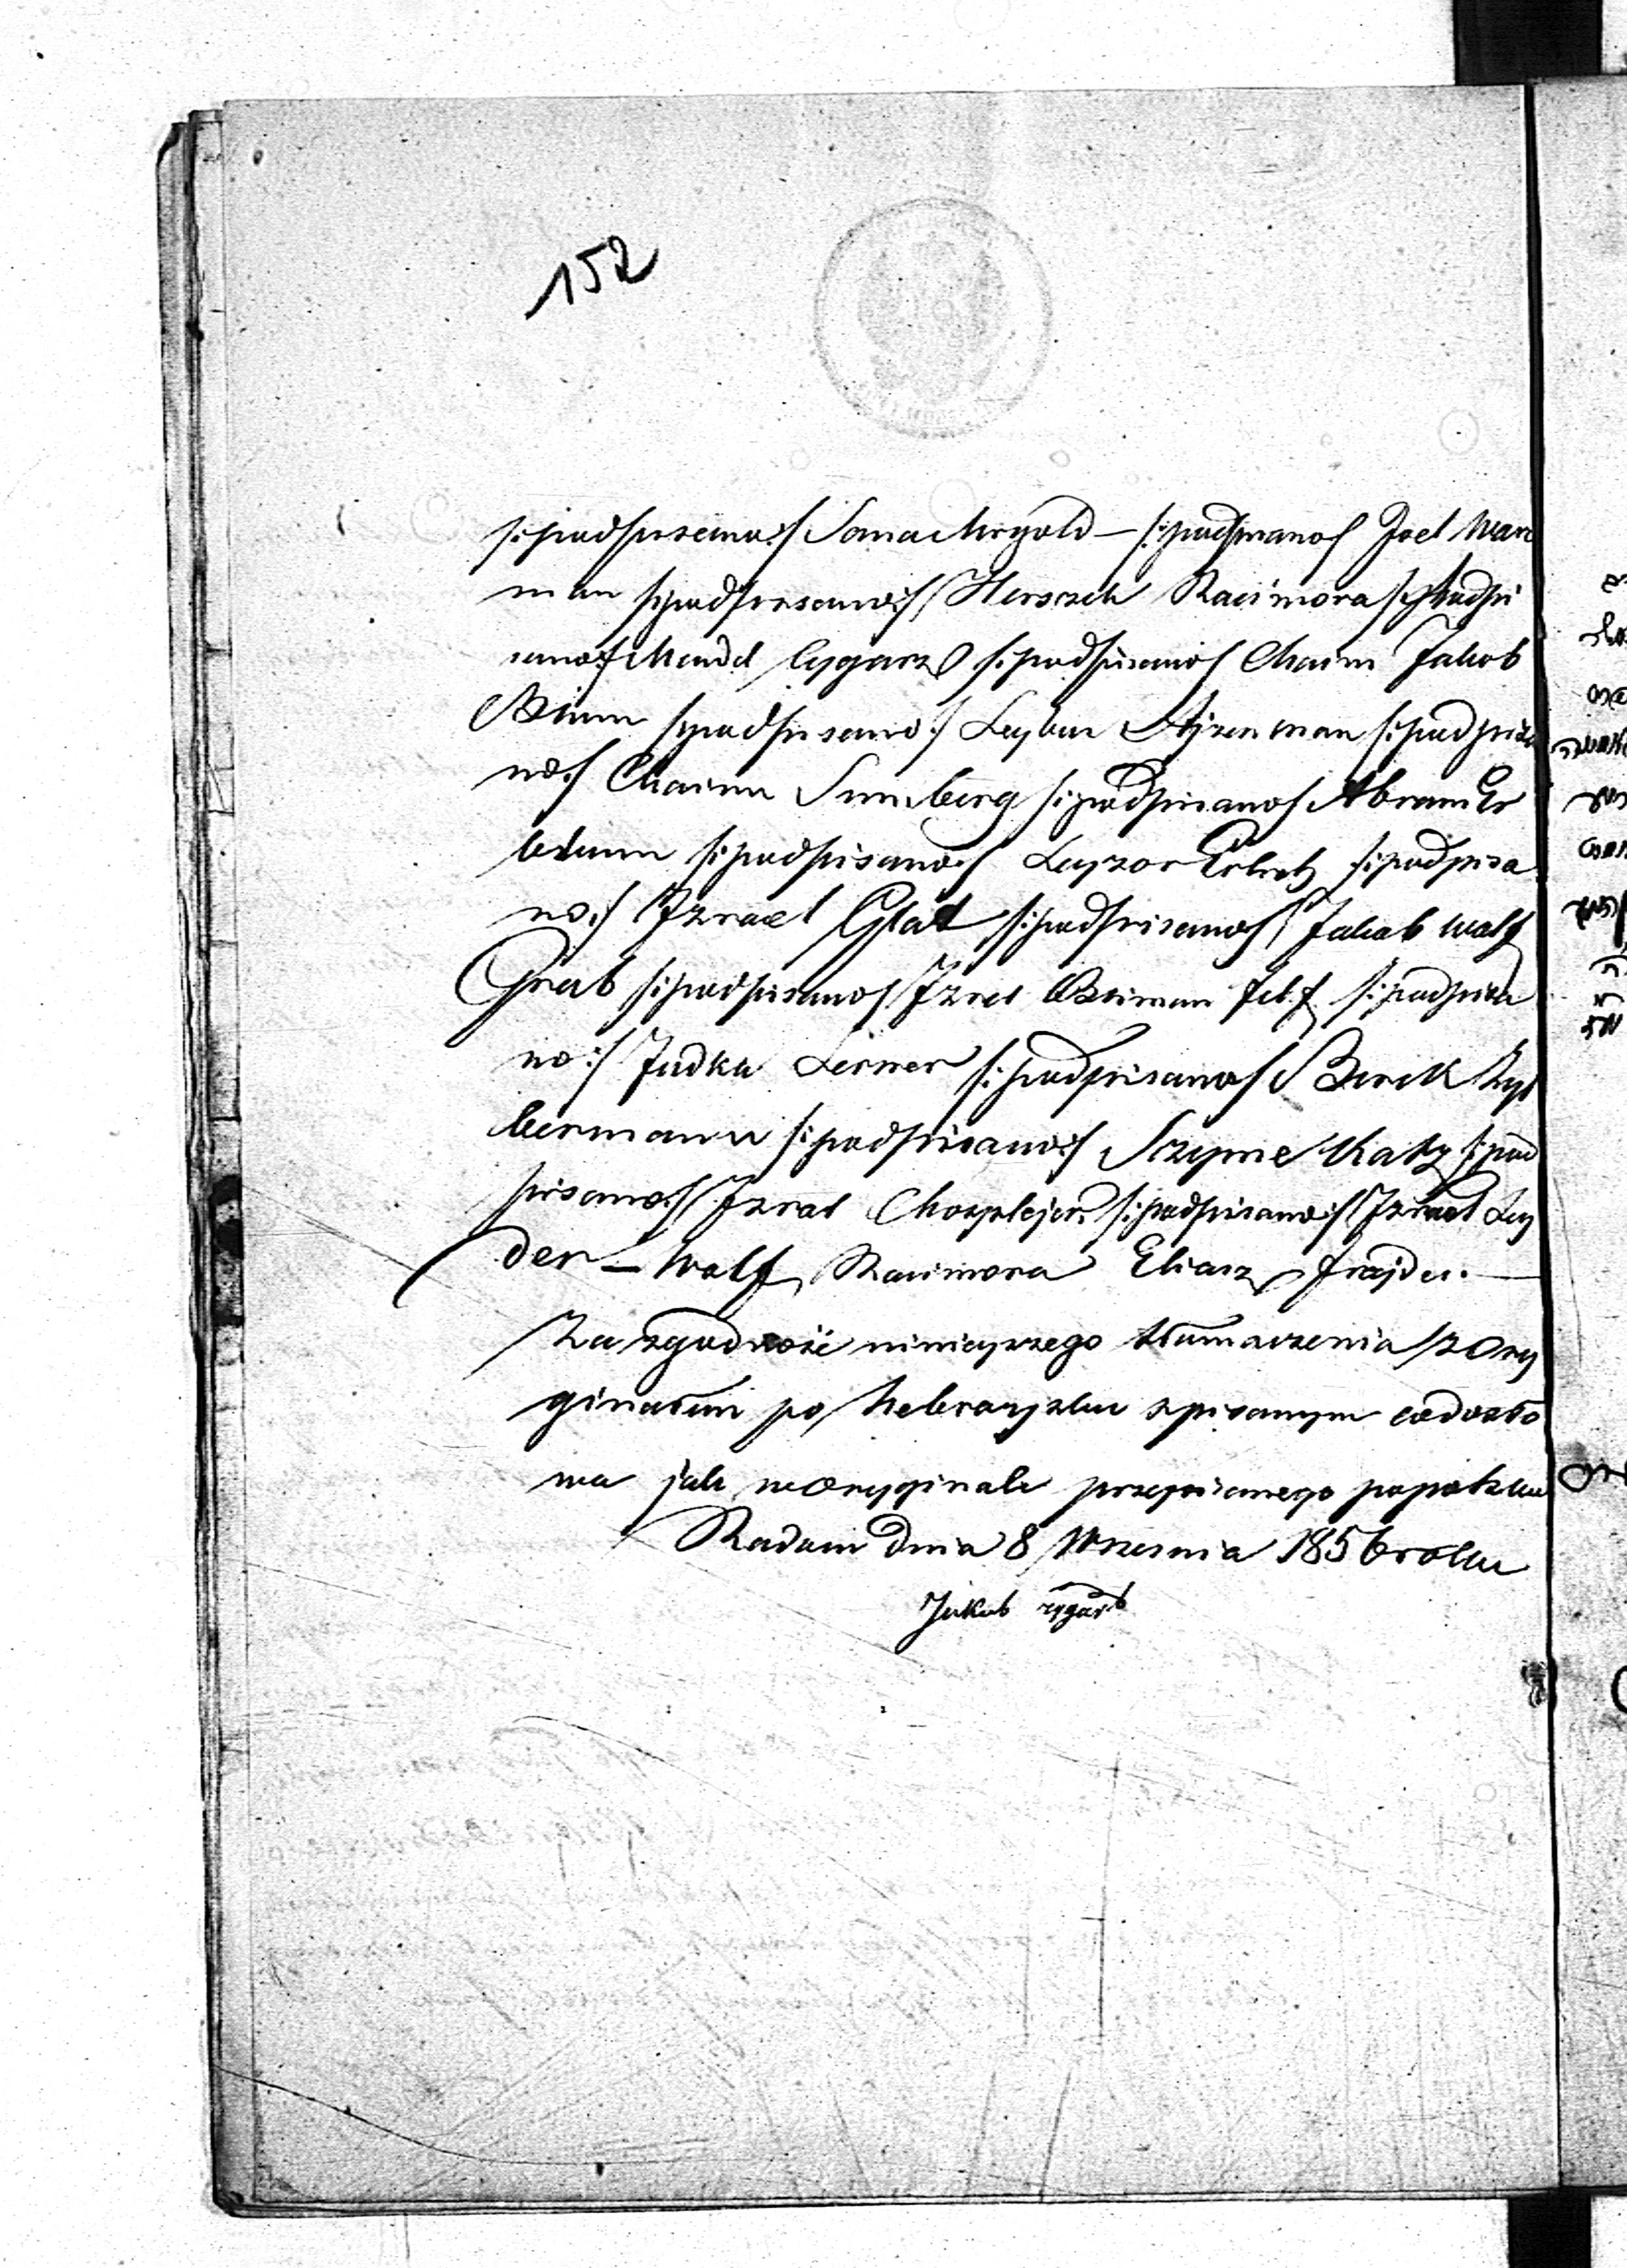 152
/:podpisano:/ Soma Mrgold — /:podpisano/ Joel Wan
man /:podpisano:/ Herszek Racimora /:podpi
sano:/ Mendel Cygarz /:podpisano/ Chaim Jakob
Bium /:podpisano:/ Leybu Ajzenman /:podpisa
no:/ Chaim Sumberg /:podpisano/ Abram Er
baum /:podpisano/ Layzor Erlich /:podpisa
no:/ Izrael Glat /:podpisano/ Jakob Wolf
Grab /:podpisano/ Izrael Baiman /:podpisa
no:/ Judka Lerner /:podpisano/ Berek Zyl
bermann /:podpisano:/ Szyme Katz /:pod
pisano:/ Izrael /:podpisano:/ Izrael Ley
der — Wolf Racimora Eliasz Frajder. —
Za zgodność niniejszego tłumaczenia z Ory
ginałem po hebrajsku spisanym co do sło
wa jak w Oryginale przepisanego po polsku
Radom Dnia 8 Wrzesnia 1856 roku
Jakob Cygarz